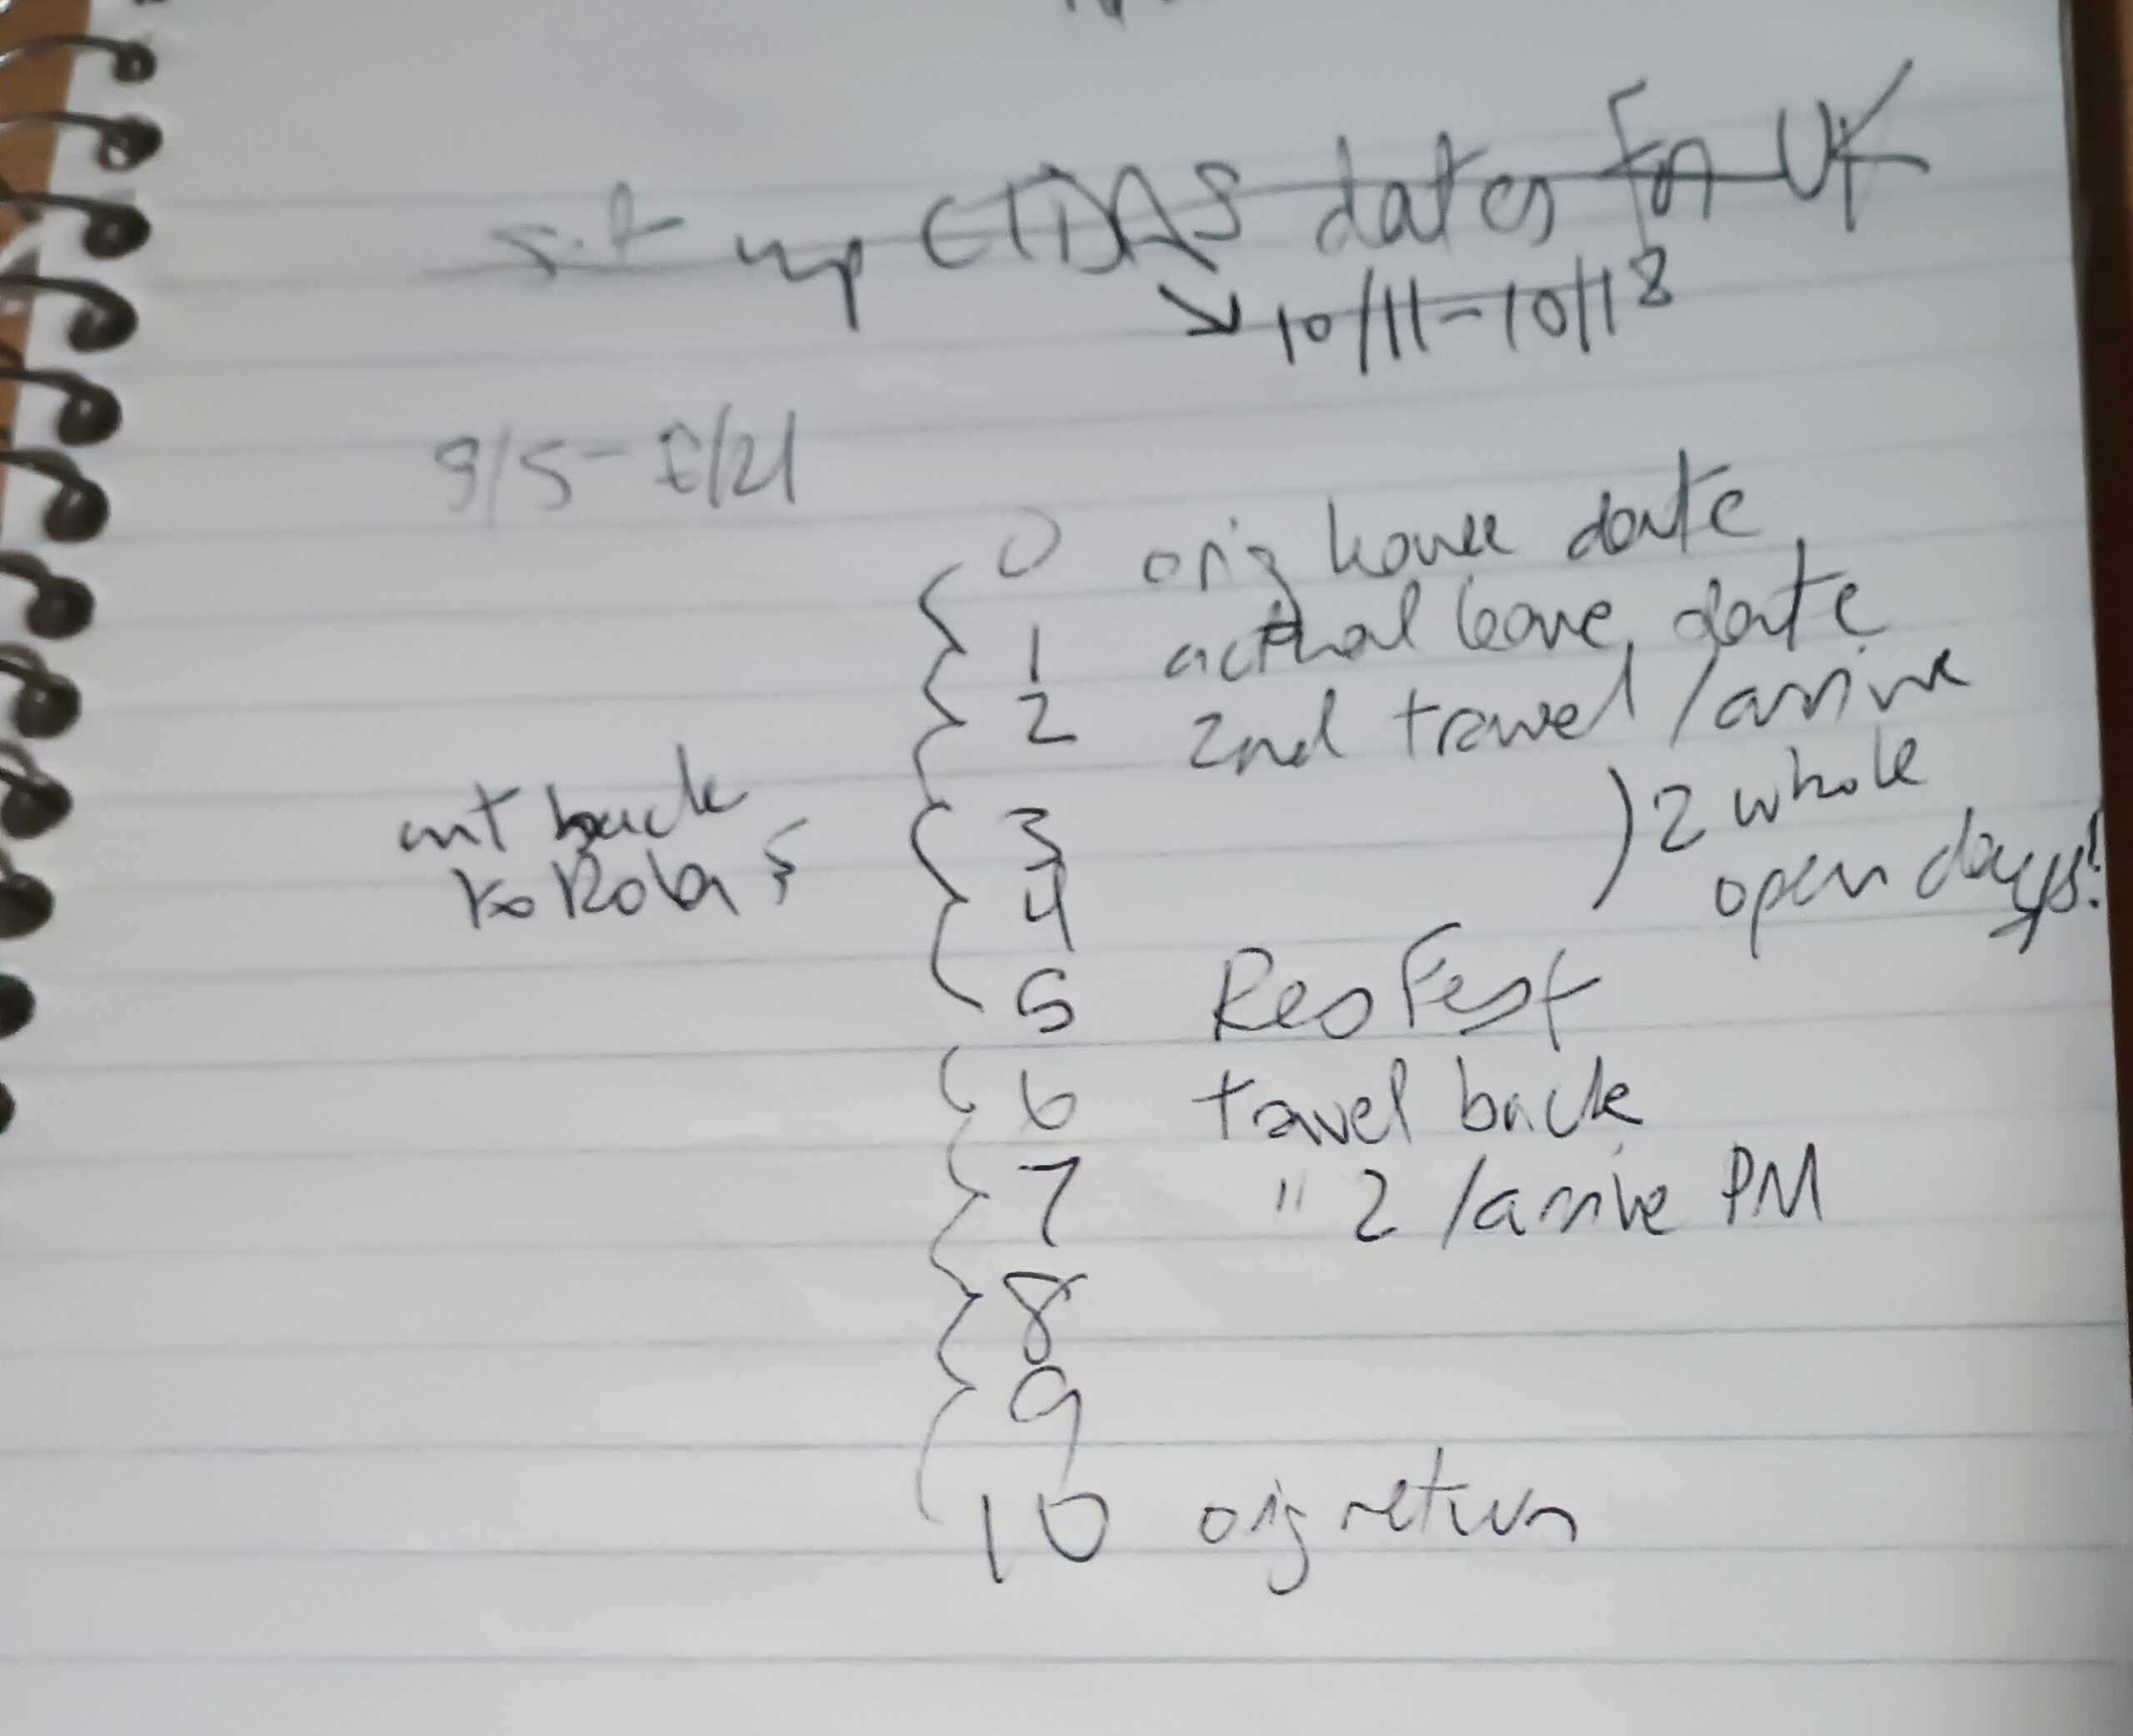 set up CTDAS dates for UK
10/11-10/18
9/5-8/21
0 orig leave date
1 actual leave date
2 2nd travel / arrive
3
4
) 2 whole
open days!
back
to
5 ResFest
6 travel back
7 " 2 / arrive PM
8
9
10 orig return